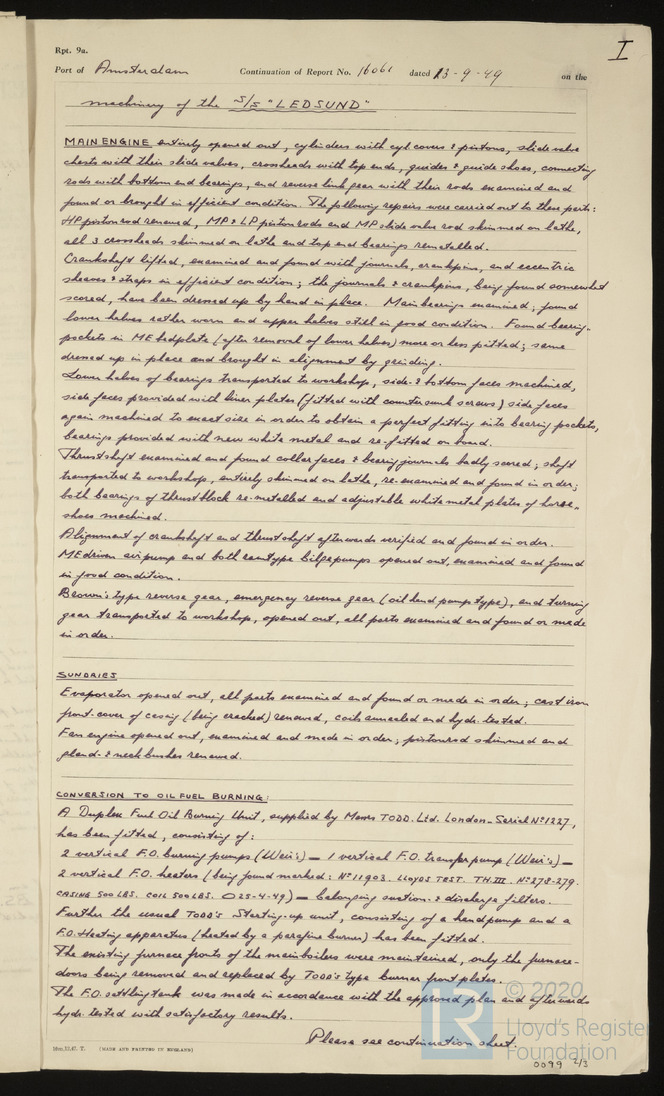 I
Rpt. 9a.
Port of Amsterdam Continuation of Report No. 16061 dated 13-9-49 on the
machinery of the S/S "LEDSUND"
MAIN ENGINE entirely opened out, cylinders with cyl covers & pistons, slide valve
chests with their slide valves, crossheads with top ends, guides & guide shoes, connecting
rods with bottom end bearings, and reverse link gear with their rods examined and
found or brought in efficient condition. The following repairs were carried out to these parts:
HP piston rod renewed, MP & LP piston rods and MP slide valve rod skimmed on lathe,
all 3 crossheads skimmed on lathe and top end bearings remetalled.
Crankshaft lifted, examined and found with journals, crankpins, and eccentric
sheaves & straps in efficient condition; the journals & crankpins, being found somewhat
scored, have been dressed up by hand in place. Main bearings examined; found
lower helves rather worn and upper helves still in good condition. Found bearing-
pockets in ME bedplate (after removal of lower helves) more or less pitted; same
dressed up in place and brought in alignment by grinding.
Lower helves of bearings transported to workshop, side- & bottom faces machined,
side faces provided with liner plates (fitted with countersunk screws) side faces
again machined to exact size in order to obtain a perfect fitting into bearing pockets,
bearings provided with new white metal and re-fitted on board.
Thrustshaft examined and found collar faces & bearing journals badly scored; shaft
transported to workshop, entirely skimmed on lathe, re-examined and found in order;
both bearings of thrustblock re-metalled and adjustable white metal plates of horse-
shoes machined.
Alignment of crankshaft and thrustshaft afterwards verified and found in order.
ME driven airpump and both ramtype bilgepumps opened out, examined and found
in good condition.
Brown's type reverse gear, emergency reverse gear (oil hand pump type), and turning
gear transported to workshop, opened out, all parts examined and found or made
in order.
SUNDRIES
Evaporator opened out, all parts examined and found or made in order; cast iron
front-cover of casing (being cracked) renewed, coils annealed and hydr. tested.
Fan engine opened out, examined and made in order; pistonrod skimmed and
gland- & neck bushes renewed.
CONVERSION TO OIL FUEL BURNING:
A Duplex Fuel Oil Burning Unit, supplied by Messrs TODD. Ltd. London - Serial No 1227,
has been fitted, consisting of:
2 vertical F.O. burning pumps (Weir's) — 1 vertical F.O. transfer pump (Weir's) —
2 vertical F.O. heaters (being found marked: No 11903. LLOYDS TEST. TH.III. No 278-279.
CASING 500 LBS. COIL 500 LBS. O 25-4-49) — belonging suction- & discharge filters.
Further the usual TODD's Starting-up unit, consisting of a handpump and a
F.O. Heating apparatus (heated by a parafine burner) has been fitted.
The existing furnace fronts of the mainboilers were maintained, only the furnace-
doors being removed and replaced by TODD's type burner front plates.
The F.O. settling tank was made in accordance with the approved plan and afterwards
hydr. tested with satisfactory results.
Please see continuation sheet.
(MADE AND PRINTED IN ENGLAND)
0099 2/3
© 2020
LR
Lloyd's Register
Foundation